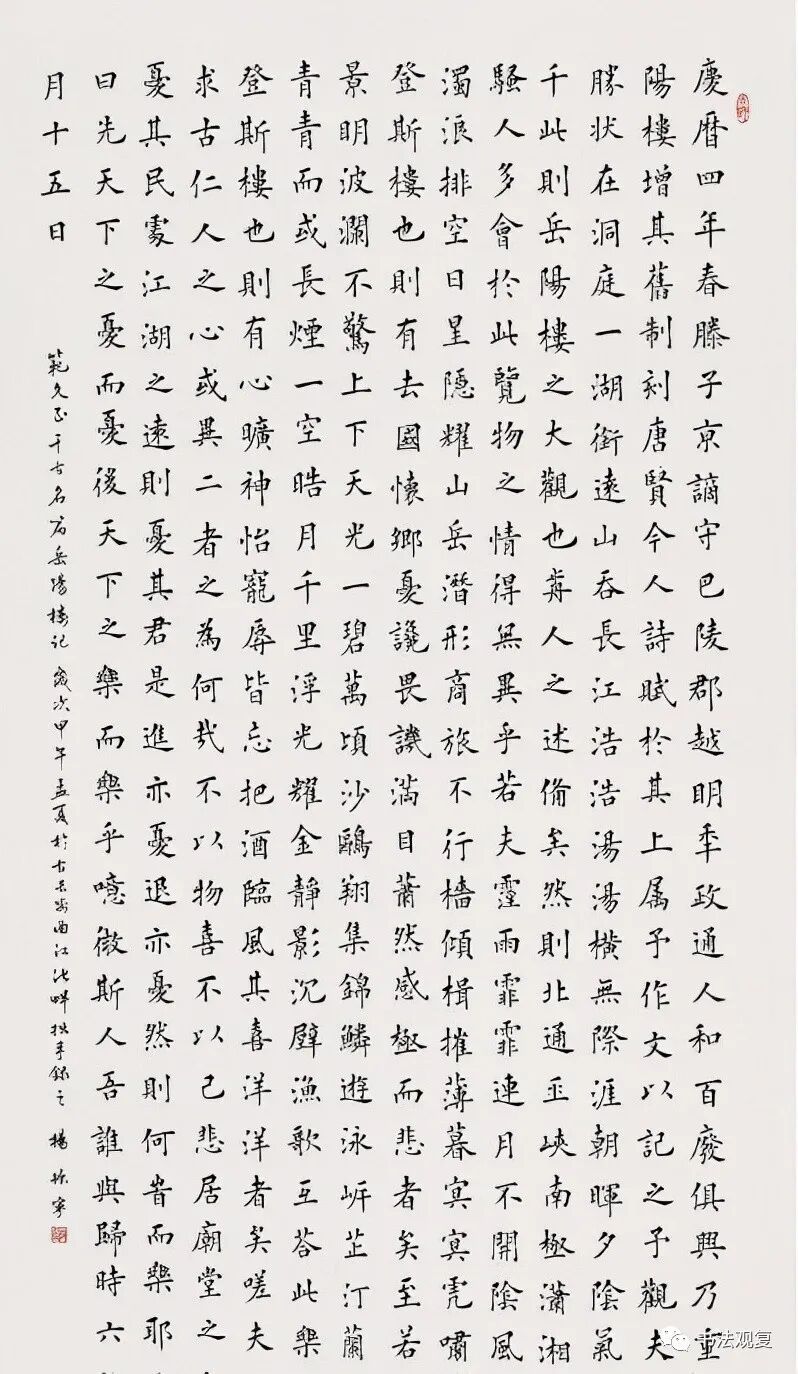 慶曆四年春滕子京謫守巴陵郡越明年政通人和百廢俱興乃重
陽樓增其舊制刻唐賢今人詩賦於其上属予作文以記之予觀夫
勝状在洞庭一湖銜遠山吞長江浩浩湯湯橫無際涯朝暉夕陰氣
千此則岳陽樓之大觀也前人之述備矣然則北通巫峽南極瀟湘
騷人多會於此覽物之情得無異乎若夫霪雨霏霏連月不開陰風
濁浪排空日星隱耀山岳潛形商旅不行檣傾楫摧薄暮冥冥虎嘯
登斯樓也則有去國懷鄉憂讒畏譏滿目蕭然感極而悲者矣至若
景明波瀾不驚上下天光一碧萬頃沙鷗翔集錦鱗遊泳岸芷汀蘭
青青而或長煙一空皓月千里浮光耀金靜影沉璧漁歌互答此樂
登斯樓也則有心曠神怡寵辱皆忘把酒臨風其喜洋洋者矣嗟夫
求古仁人之心或異二者之為何哉不以物喜不以己悲居廟堂之
憂其民處江湖之遠則憂其君是進亦憂退亦憂然則何時而樂耶
曰先天下之憂而憂後天下之樂而樂乎噫微斯人吾誰與歸時六
月十五日
範文正千古名岳陽樓記 歲次甲午孟夏於古長安曲江池畔拙手錄之 楊寧
书法观复